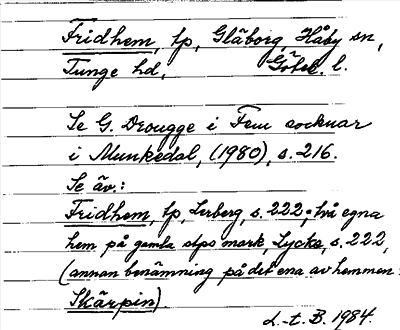 Fridhem, tp, Glåborg, Håby sn,
Tunge hd, Göteb. l.
Se G. Drougge i Fem socknar
i Munkedal, (1980), s. 216.
Se äv.:
Fridhem, tp, Lerberg, s. 222, två egna
hem på gamla stps mark, Lycka, s. 222,
(annan benämning på det ena av hemmen:
Skärpin).
L.-t. B. 1984.